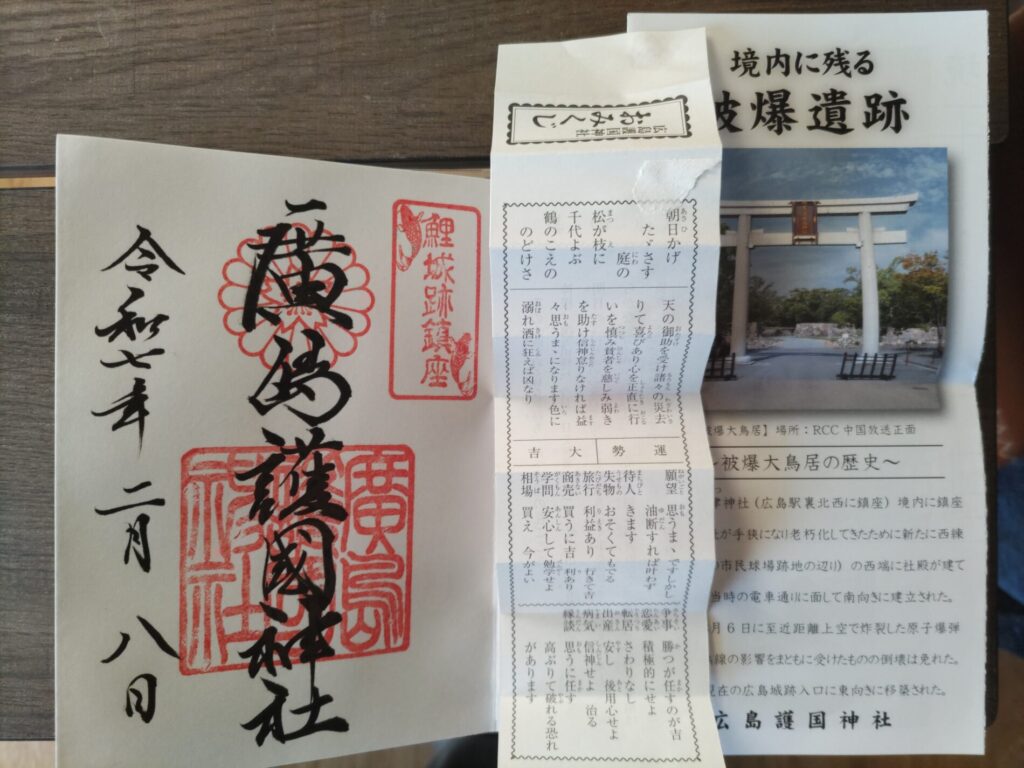 鯉城跡鎮座
廣島護國神社
廣島
護國
神社
令和七年 二月 八日
広島護国神社
おみくじ
朝日かげ
たゞさす
庭の
松が枝に
千代よぶ
鶴のこえの
のどけさ
天の御助を受け諸々の災去
りて喜びあり心を正直に行
いを慎み貧者を慈しみ弱き
を助け信神怠りなければ益
々思うまゝになります色に
溺れ酒に狂えば凶なり
運勢
大吉
願望 思うまゝですしかし
油断すれば叶わず
待人 きます
失物 おそくてもでる
旅行 利益あり 行きて吉
商売 買うに吉 利あり
学問 安心して勉学せよ
相場 買え 今がよい
争事 勝つが任すのが吉
恋愛 積極的にせよ
転居 さわりなし
出産 安し 後用心せよ
病気 信神せよ 治る
縁談 思うに任す
高ぶりて破れる恐れ
があります
境内に残る
被爆遺跡
被爆大鳥居】場所：RCC中国放送正面
～被爆大鳥居の歴史～
神社(広島駅裏北西に鎮座)境内に鎮座
が手狭になり老朽化してきたために新たに西練
市民球場跡地の辺り)の西端に社殿が建て
当時の電車通りに面して南向きに建立された。
月6日に至近距離上空で炸裂した原子爆弾
線の影響をまともに受けたものの倒壊は免れた。
現在の広島城跡入口に東向きに移築された。
広島護国神社